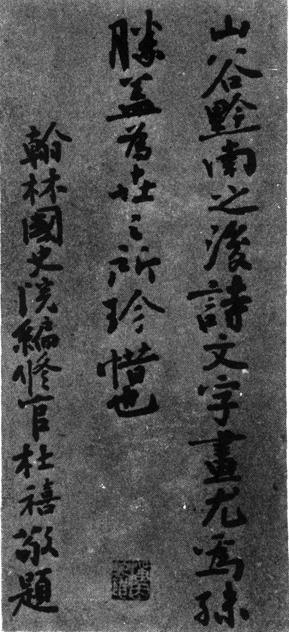 山谷黔南之後詩文字畫尤為殊
勝盖為世之所珍惜也
翰林國史院編修官杜禧敬題